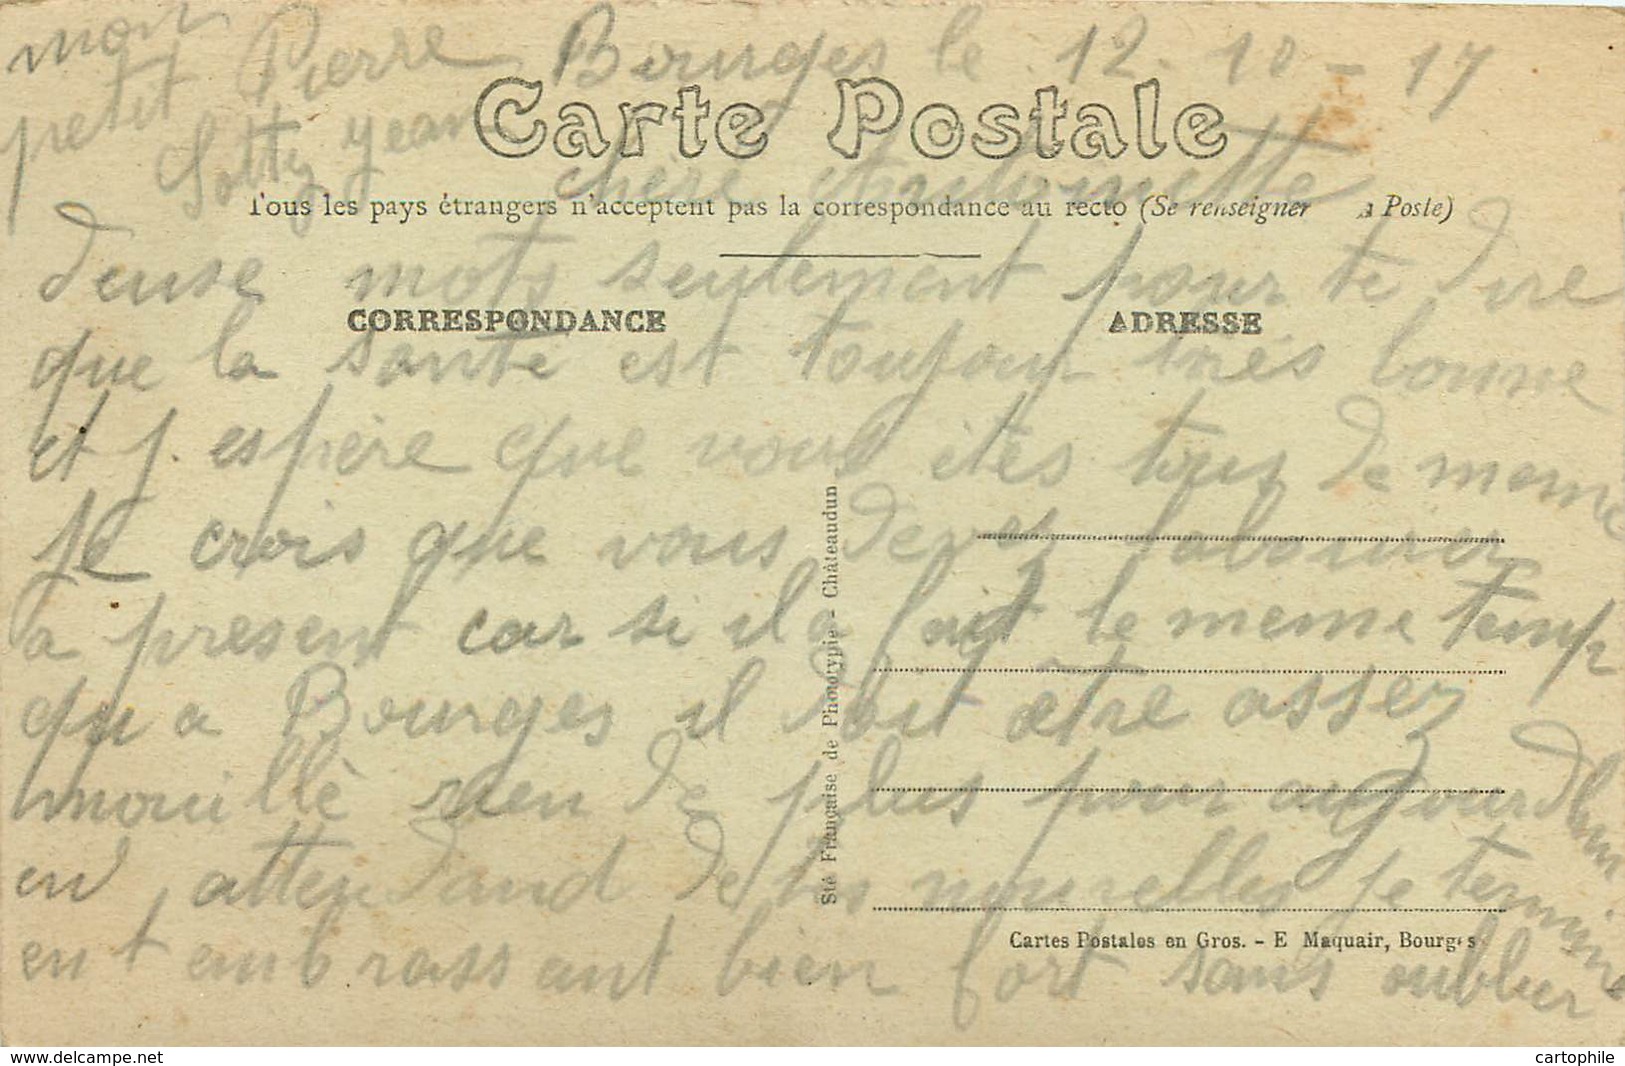 Bourges le 12-10-17
Carte Postale
chère Antoinette
Tous les pays étrangers n'acceptent pas la correspondance au recto (Se renseigner à la Poste)
deuse mots seulement pour te dire
CORRESPONDANCE
ADRESSE
que la santé est toujour très bonne
et j. espère que vous êtes tous de meme
je crois que vous devez labourer
a present car si il a fait le meme temp
qu a Bourges il doit être assez
mouillè rien de plus pour aujourd'hui
en attendand de tes nouvelles je termine
ent embrassant bien fort sans oublier
mon
petit Pierre
Jean
Sté Française de Phototypie - Châteaudun
Cartes Postales en Gros. - E Maquair, Bourges
www.delcampe.net
cartophile